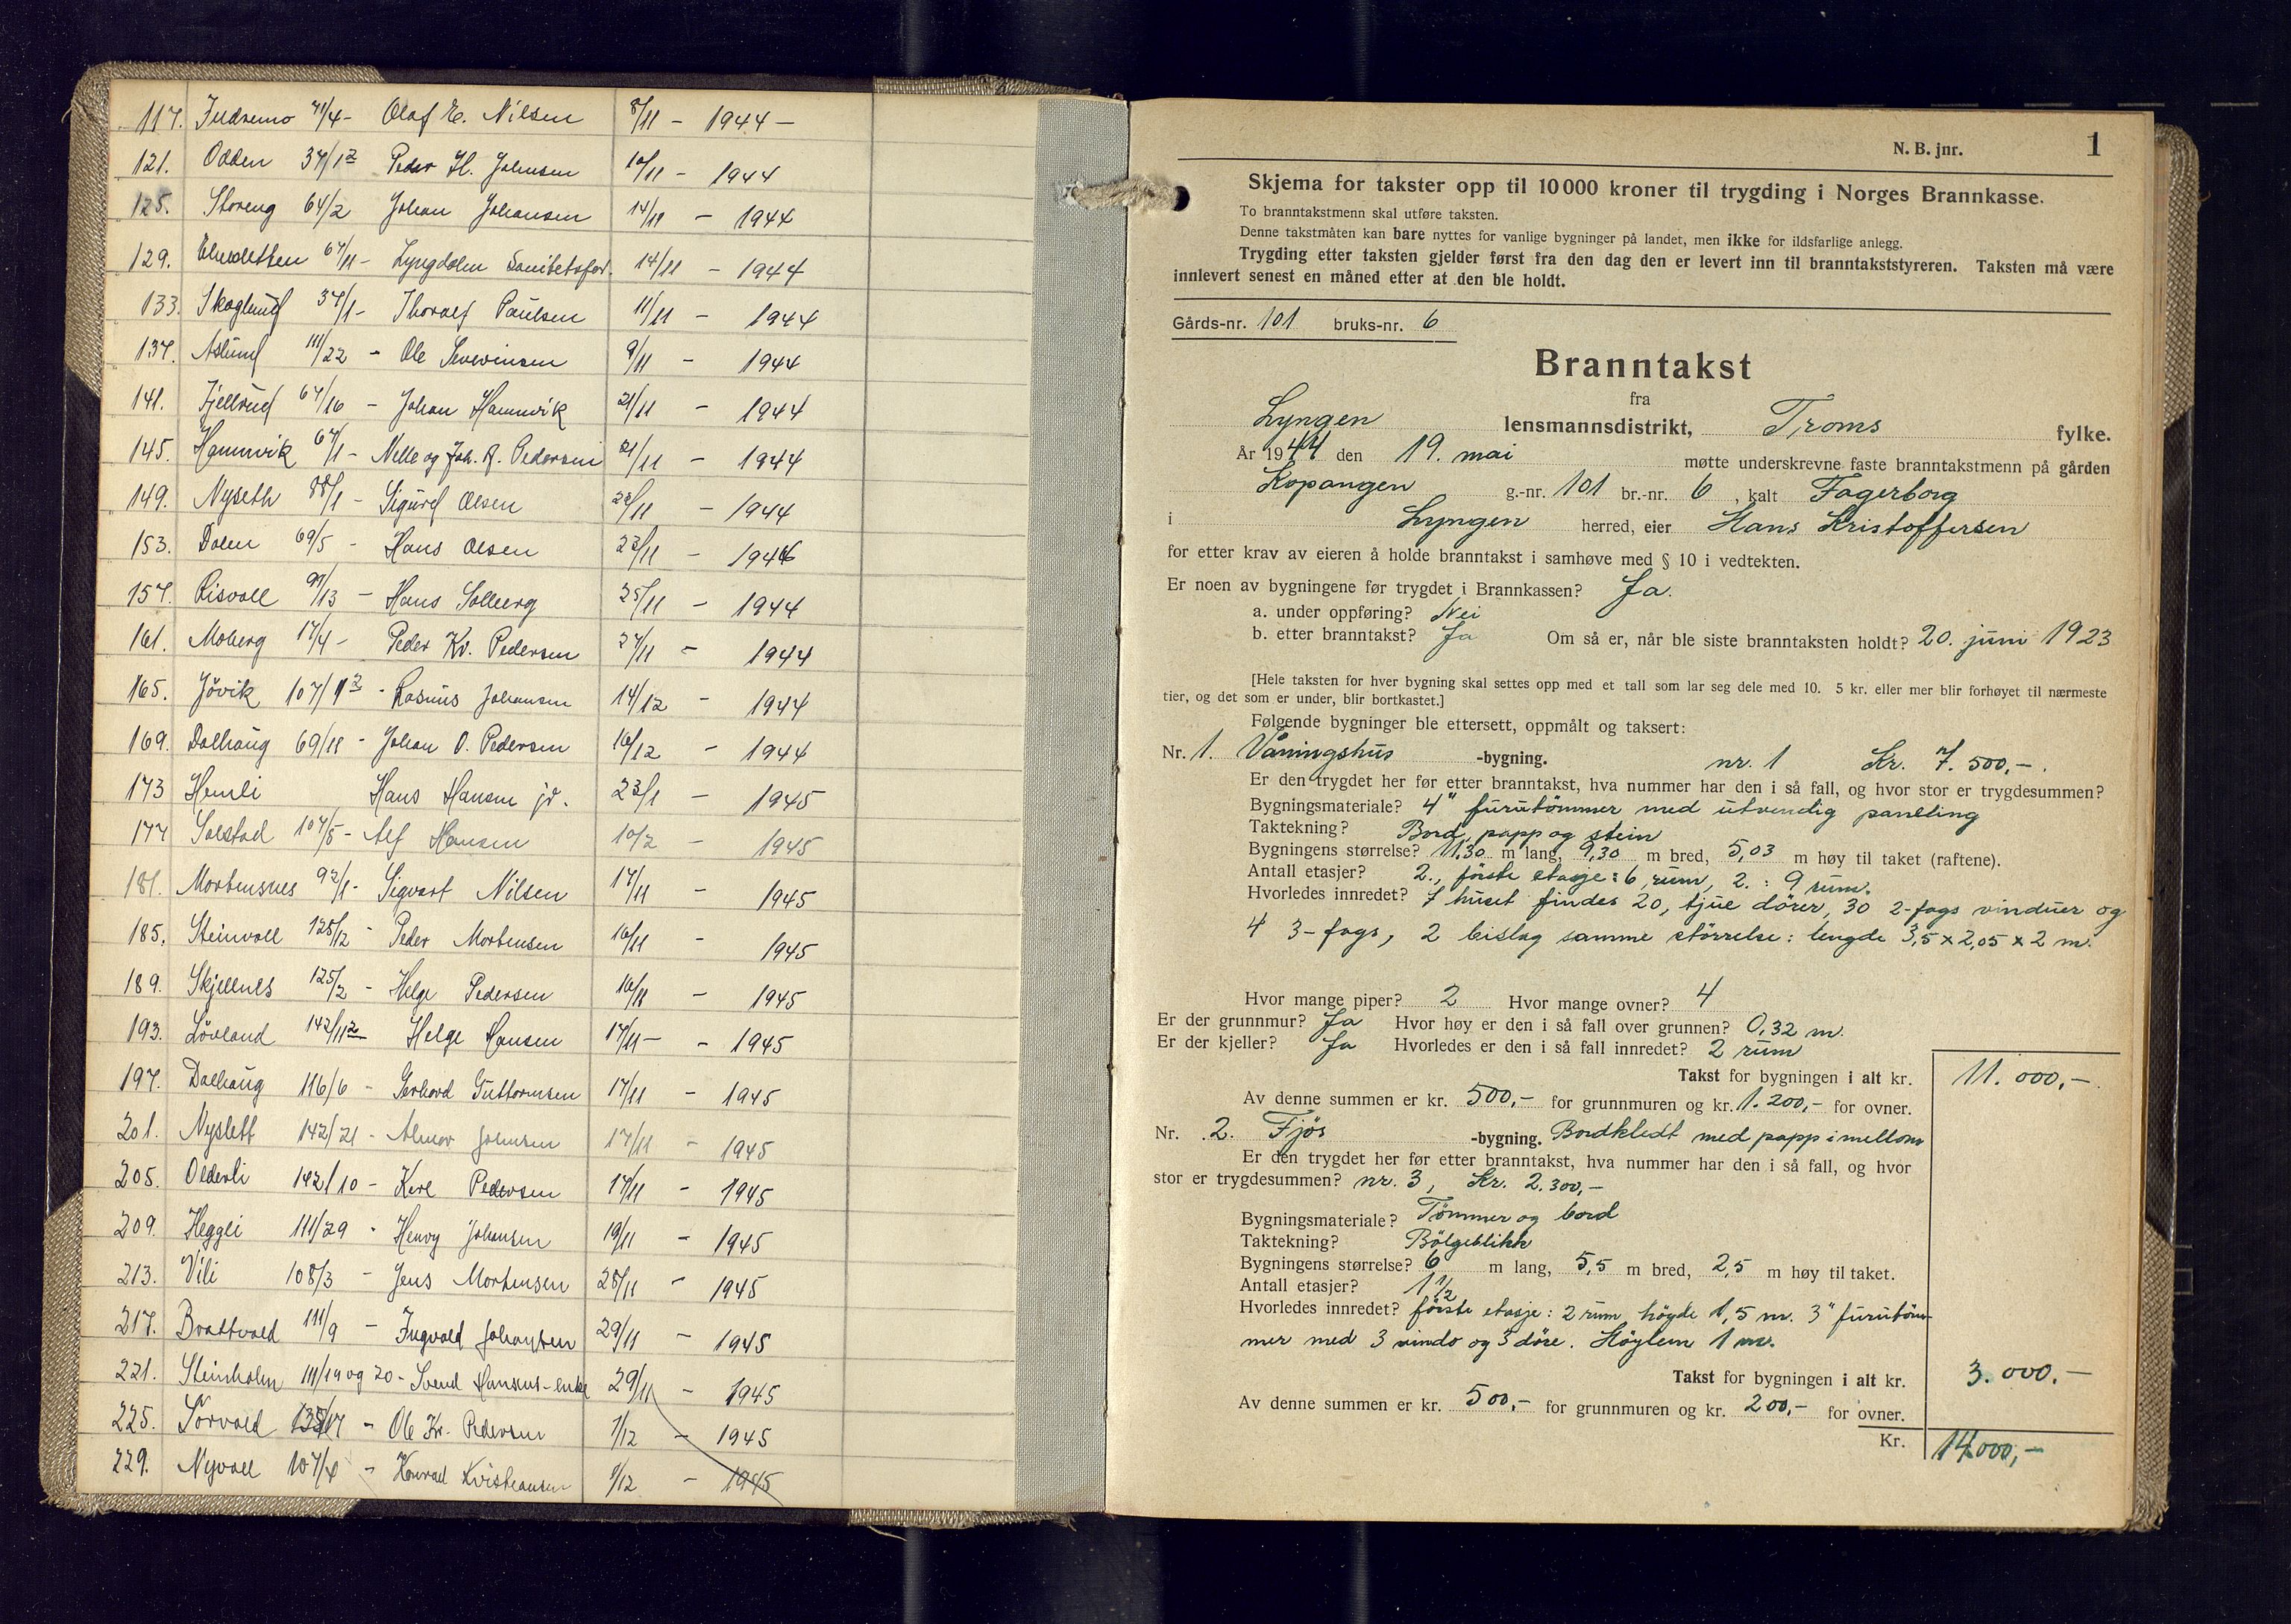 117. Indremo 71/4 - Olaf E. Nilsen 8/11 - 1944 -
121. Odden 37/12 Peder H. Johnsen 10/11 - 1944
125. Storeng 64/2 Johan Johansen 14/11 - 1944
129. 67/11 - Lyngdalen Sanitetsfor. 14/11 - 1944
133. Skoglund 37/1 - Thoralf Paulsen 11/11 - 1944
137. Aslund 111/22 - Ole Severinsen 9/11 - 1944
141. Fjellrud 67/16 - Johan Hamnvik 21/11 - 1944
145. Hamnvik 67/1 - Nelle og Joh. R. Pedersen 21/11 - 1944
149. Nyseth 88/1 - Sigurd Olsen 23/11 - 1944
153. Dalen 69/5 - Hans Olsen 23/11 - 1944
157. Risvoll 97/13 - Hans Solberg 25/11 - 1944
161. Moberg 17/4 - Peder Kr. Pedersen 27/11 - 1944
165. Jövik 107/12 - Rasmus Johansen 14/12 - 1944
169. Dalhaug 69/11 - Johan O. Pedersen 16/12 - 1944
173 Hemli Hans Hansen jr. 23/1 - 1945
177 Solstad 107/5 - Alf Hansen 10/2 - 1945
181. Mortensnes 92/1 - Sigvart Nilsen 17/11 - 1945
185. Steinvoll 125/12 - Peder Mortensen 16/11 - 1945
189. Skjellnes 125/2 - Helge Pedersen 16/11 - 1945
193. Lövland 142/112 Helge Hansen 17/11 - - 1945
197. Dalhaug 116/6 - Gerhard Guttormsen 17/11 - 1945
201. Nyslett 142/21 - Almar Johnsen 17/11 - 1945
205. Olderli 142/10 - Karl Pedersen 17/11 - 1945
209. Heggli 111/29 - Henry Johansen 19/11 - 1945
213. Vili 108/3 - Jens Mortensen 28/11 - 1945
217. Brattvold 111/9 - Ingvald Johansen 29/11 - 1945
221. Steinholm 111/19 og 20 - Svend Hansens - enke 29/11 - 1945
225. Sörvold - Ole Kr. Pedersen 1/12 - 1945
229. Nyvoll 107/4 - Konrad Kristiansen 1/12 - 1945
N. B. jnr. 1
Skjema for takster opp til 10 000 kroner til trygding i Norges Brannkasse.
To branntakstmenn skal utføre taksten.
Denne takstmåten kan bare nyttes for vanlige bygninger på landet, men ikke for ildsfarlige anlegg.
Trygding etter taksten gjelder først fra den dag den er levert inn til branntakststyreren. Taksten må være
innlevert senest en måned etter at den ble holdt.
Gårds-nr. 101 bruks-nr. 6
Branntakst
fra
Lyngen lensmannsdistrikt, Troms fylke.
År 1944 den 19. mai møtte underskrevne faste branntakstmenn på gården
Kopangen g.-nr. 101 br.-nr. 6, kalt Fagerborg
i Lyngen herred, eier Hans Kristoffersen
for etter krav av eieren å holde branntakst i samhøve med § 10 i vedtekten.
Er noen av bygningene før trygdet i Brannkassen? Ja.
a. under oppføring? Nei
b. etter branntakst? Ja Om så er, når ble siste branntaksten holdt? 20. juni 1923
[Hele taksten for hver bygning skal settes opp med et tall som lar seg dele med 10. 5 kr. eller mer blir forhøyet til nærmeste
tier, og det som er under, blir bortkastet.]
Følgende bygninger ble ettersett, oppmålt og taksert:
Nr. 1. Våningshus -bygning. nr. 1 Kr. 7.500,-.
Er den trygdet her før etter branntakst, hva nummer har den i så fall, og hvor stor er trygdesummen?
Bygningsmateriale? 4" furutömmer med utvendig paneling
Taktekning? Bord, papp og stein
Bygningens størrelse? 11,30 m lang, 9,30 m bred, 5,03 m høy til taket (raftene).
Antall etasjer? 2., förste etasje: 6 rum, 2.: 9 rum.
Hvorledes innredet? I huset findes 20, tjue dörer, 30 2-fags vinduer og
4 3-fags, 2 bislag samme störrelse: lengde 3,5 x 2,05 x 2 m.
Hvor mange piper? 2 Hvor mange ovner? 4
Er der grunnmur? Ja Hvor høy er den i så fall over grunnen? 0,32 m.
Er der kjeller? Ja Hvorledes er den i så fall innredet? 2 rum
Takst for bygningen i alt kr. 11.000,-.
Av denne summen er kr. 500,- for grunnmuren og kr. 1.200,- for ovner.
Nr. 2. Fjös -bygning. Bordkledt med papp imellom
Er den trygdet her før etter branntakst, hva nummer har den i så fall, og hvor
stor er trygdesummen? nr. 3, Kr. 2.300,-
Bygningsmateriale? Tömmer og bord
Taktekning? Bölgeblikk
Bygningens størrelse? 6 m lang, 5,5 m bred, 2,5 m høy til taket.
Antall etasjer? 1 1/2
Hvorledes innredet? förste etasje: 2 rum högde 1,5 m. 3" furutöm-
mer med 3 vindo og 3 döre. Höylem 1 m.
Takst for bygningen i alt kr. 3.000.-
Av denne summen er kr. 500,- for grunnmuren og kr. 200,- for ovner.
Kr. 14.000,-